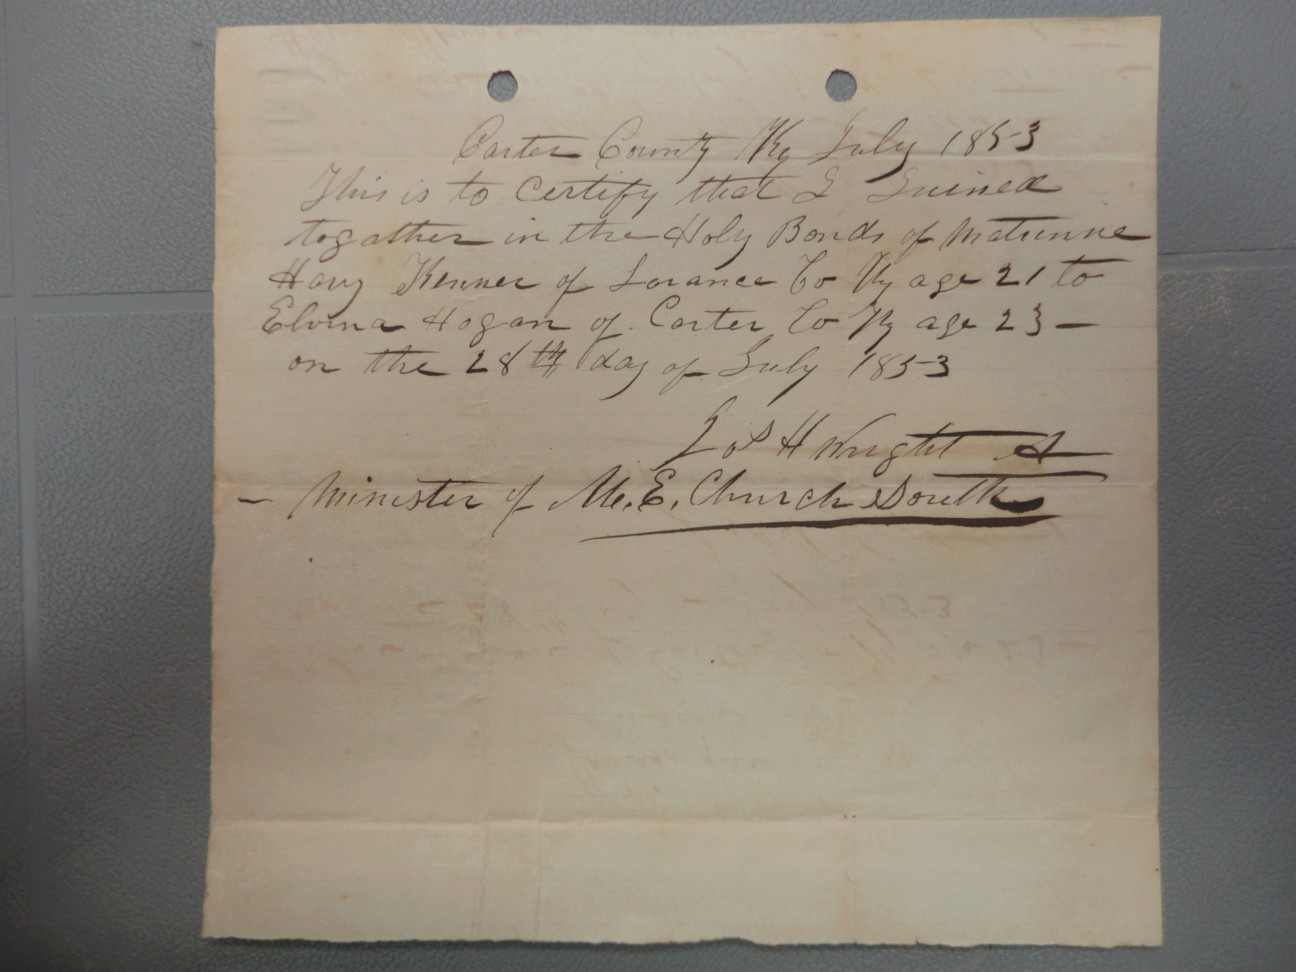 Carter County Ky July 1853
This is to Certify that I Juined
togather in the Holy Bonds of Matrimnie
Harry Kenner of Lorance Co Ky age 21 to
Elvina Hogan of Carter Co Ky age 23 —
on the 28th day of July 1853
Jos H Wright
— Minister of M.E. Church South